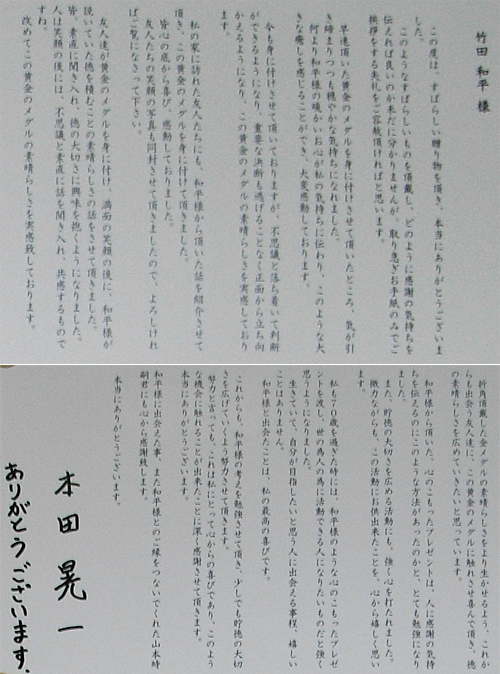 竹田 和平 様
この度は、すばらしい贈り物を頂き、本当にありがとうございま
した。
このようなすばらしいものを頂戴し、どのように感謝の気持ちを
伝えれば良いのか未だに分かりませんが、取り急ぎお手紙のみでご
挨拶をする失礼をご容赦頂ければと思います。
早速頂いた黄金のメダルを身に付けさせて頂いたところ、気が引
き締まりつつも穏やかな気持ちになれました。
何より和平様の暖かいお心が私の気持ちに伝わり、このような大
きな癒しを感じることができ、大変感動しております。
今も身に付けさせて頂いておりますが、不思議と落ち着いて判断
ができるようになり、重要な決断も逃げることなく正面から立ち向
かえるようになり、この黄金のメダルの素晴らしさを実感しており
ます。
私の家に訪れた友人たちにも、和平様から頂いた話を紹介させて
頂き、この黄金のメダルを身に付けて頂きました。
皆心の底から喜び、感動しておりました。
友人たちの笑顔の写真も同封させて頂きましたので、よろしけれ
ばご覧になさって下さい。
友人達が黄金のメダルを身に付け、満面の笑顔の後に、和平様が
説いていた徳を積むことの素晴らしさの話をさせて頂きました。
皆、素直に聞き入れ、徳の大切さに興味を抱くようになりました。
人は笑顔の後には、不思議と素直に話を聞き入れ、共感するもので
すね。
改めてこの黄金のメダルの素晴らしさを実感致しております。
折角頂戴した金メダルの素晴らしさをより生かせるよう、これか
らも出会う友人達に、この黄金のメダルに触れさせ喜んで頂き、徳
の素晴らしさを広めていきたいと思っています。
和平様から頂いた、心のこもったプレゼントは、人に感謝の気持
ちを伝えるのにこのような方法があったのかと、とても勉強になり
ました。
また、貯徳の大切さを広める活動にも、強く心を打たれました。
微力ながらも、この活動にお供出来たことを、心から嬉しく思い
ます。
私も70歳を過ぎた時には、和平様のような心のこもったプレゼ
ントを渡し、世の為人の為に活動できる人になりたいものだと強く
思うようになりました。
生きていて、自分が目指したいと思う人に出会える事程、嬉しい
ことはありません。
和平様と出会えたことは、私の最高の喜びです。
これからも、和平様の考えを勉強させて頂き、少しでも貯徳の大切
さを広げていくよう努力させて頂きます。
努力と言っても、これは私にとって心からの喜びであり、このよう
な機会に触れることが出来たことに深く感謝させて頂きます。
本当にありがとうございます。
和平様に出会えた事、また和平様とのご縁をつないでくれた山本時
嗣君にも心から感謝致します。
本当にありがとうございます。
本田 晃一
ありがとうございます。